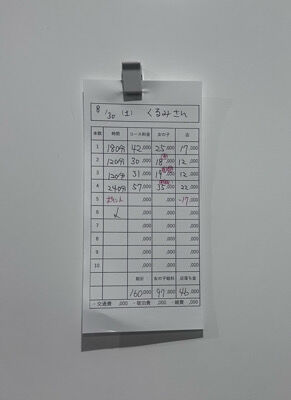 8/30 (土) くるみさん
本数 時間 コース料金 女の子 店
1 180分 42,000 25,000 17,000
2 120分 30,000 18,000 12,000
3 120分 31,000 19,000 12,000
4 240分 57,000 35,000 22,000
5 ,000 ,000 -17,000
6 ,000 ,000 ,000
7 ,000 ,000 ,000
8 ,000 ,000 ,000
9 ,000 ,000 ,000
10 ,000 ,000 ,000
女の子給料 店落ち金
160,000 97,000 46,000
- 交通費 ,000 - 宿泊費 ,000 - 雑費 ,000